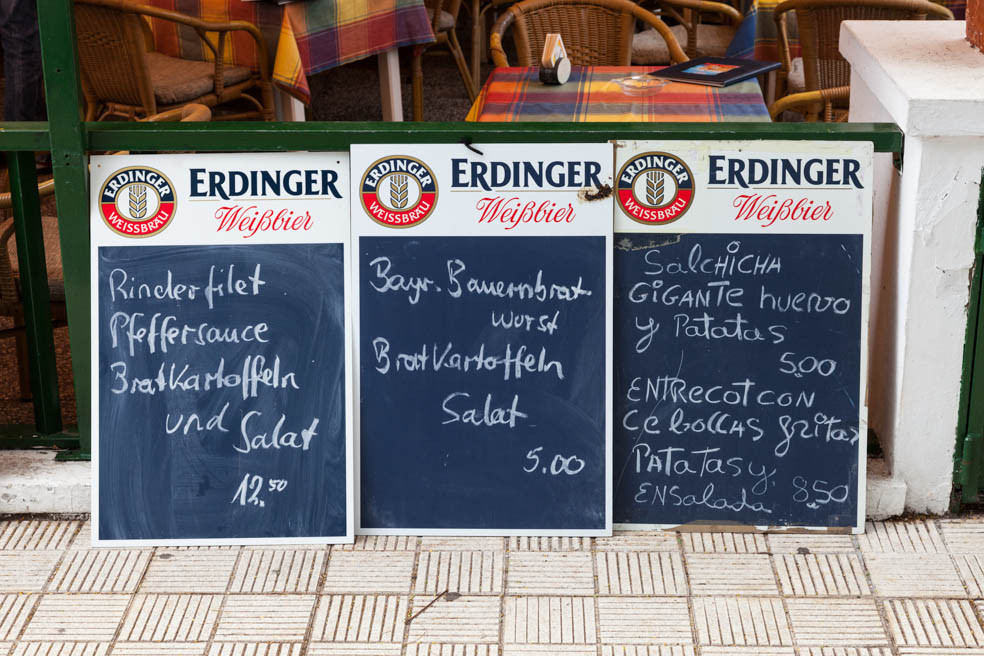 ERDINGER
WEISSBRÄU
ERDINGER
Weißbier
Rinderfilet
Pfeffersauce
Bratkartoffeln
und Salat
12.50
ERDINGER
WEISSBRÄU
ERDINGER
Weißbier
Bayr. Bauernbrat-
wurst
Bratkartoffeln
Salat
5.00
ERDINGER
WEISSBRÄU
ERDINGER
Weißbier
SalCHICHA
GIGANTE huevo
y Patatas
5.00
ENTRECOT CON
Cebollas fritas
PATATAS y
ENSalada 8.50